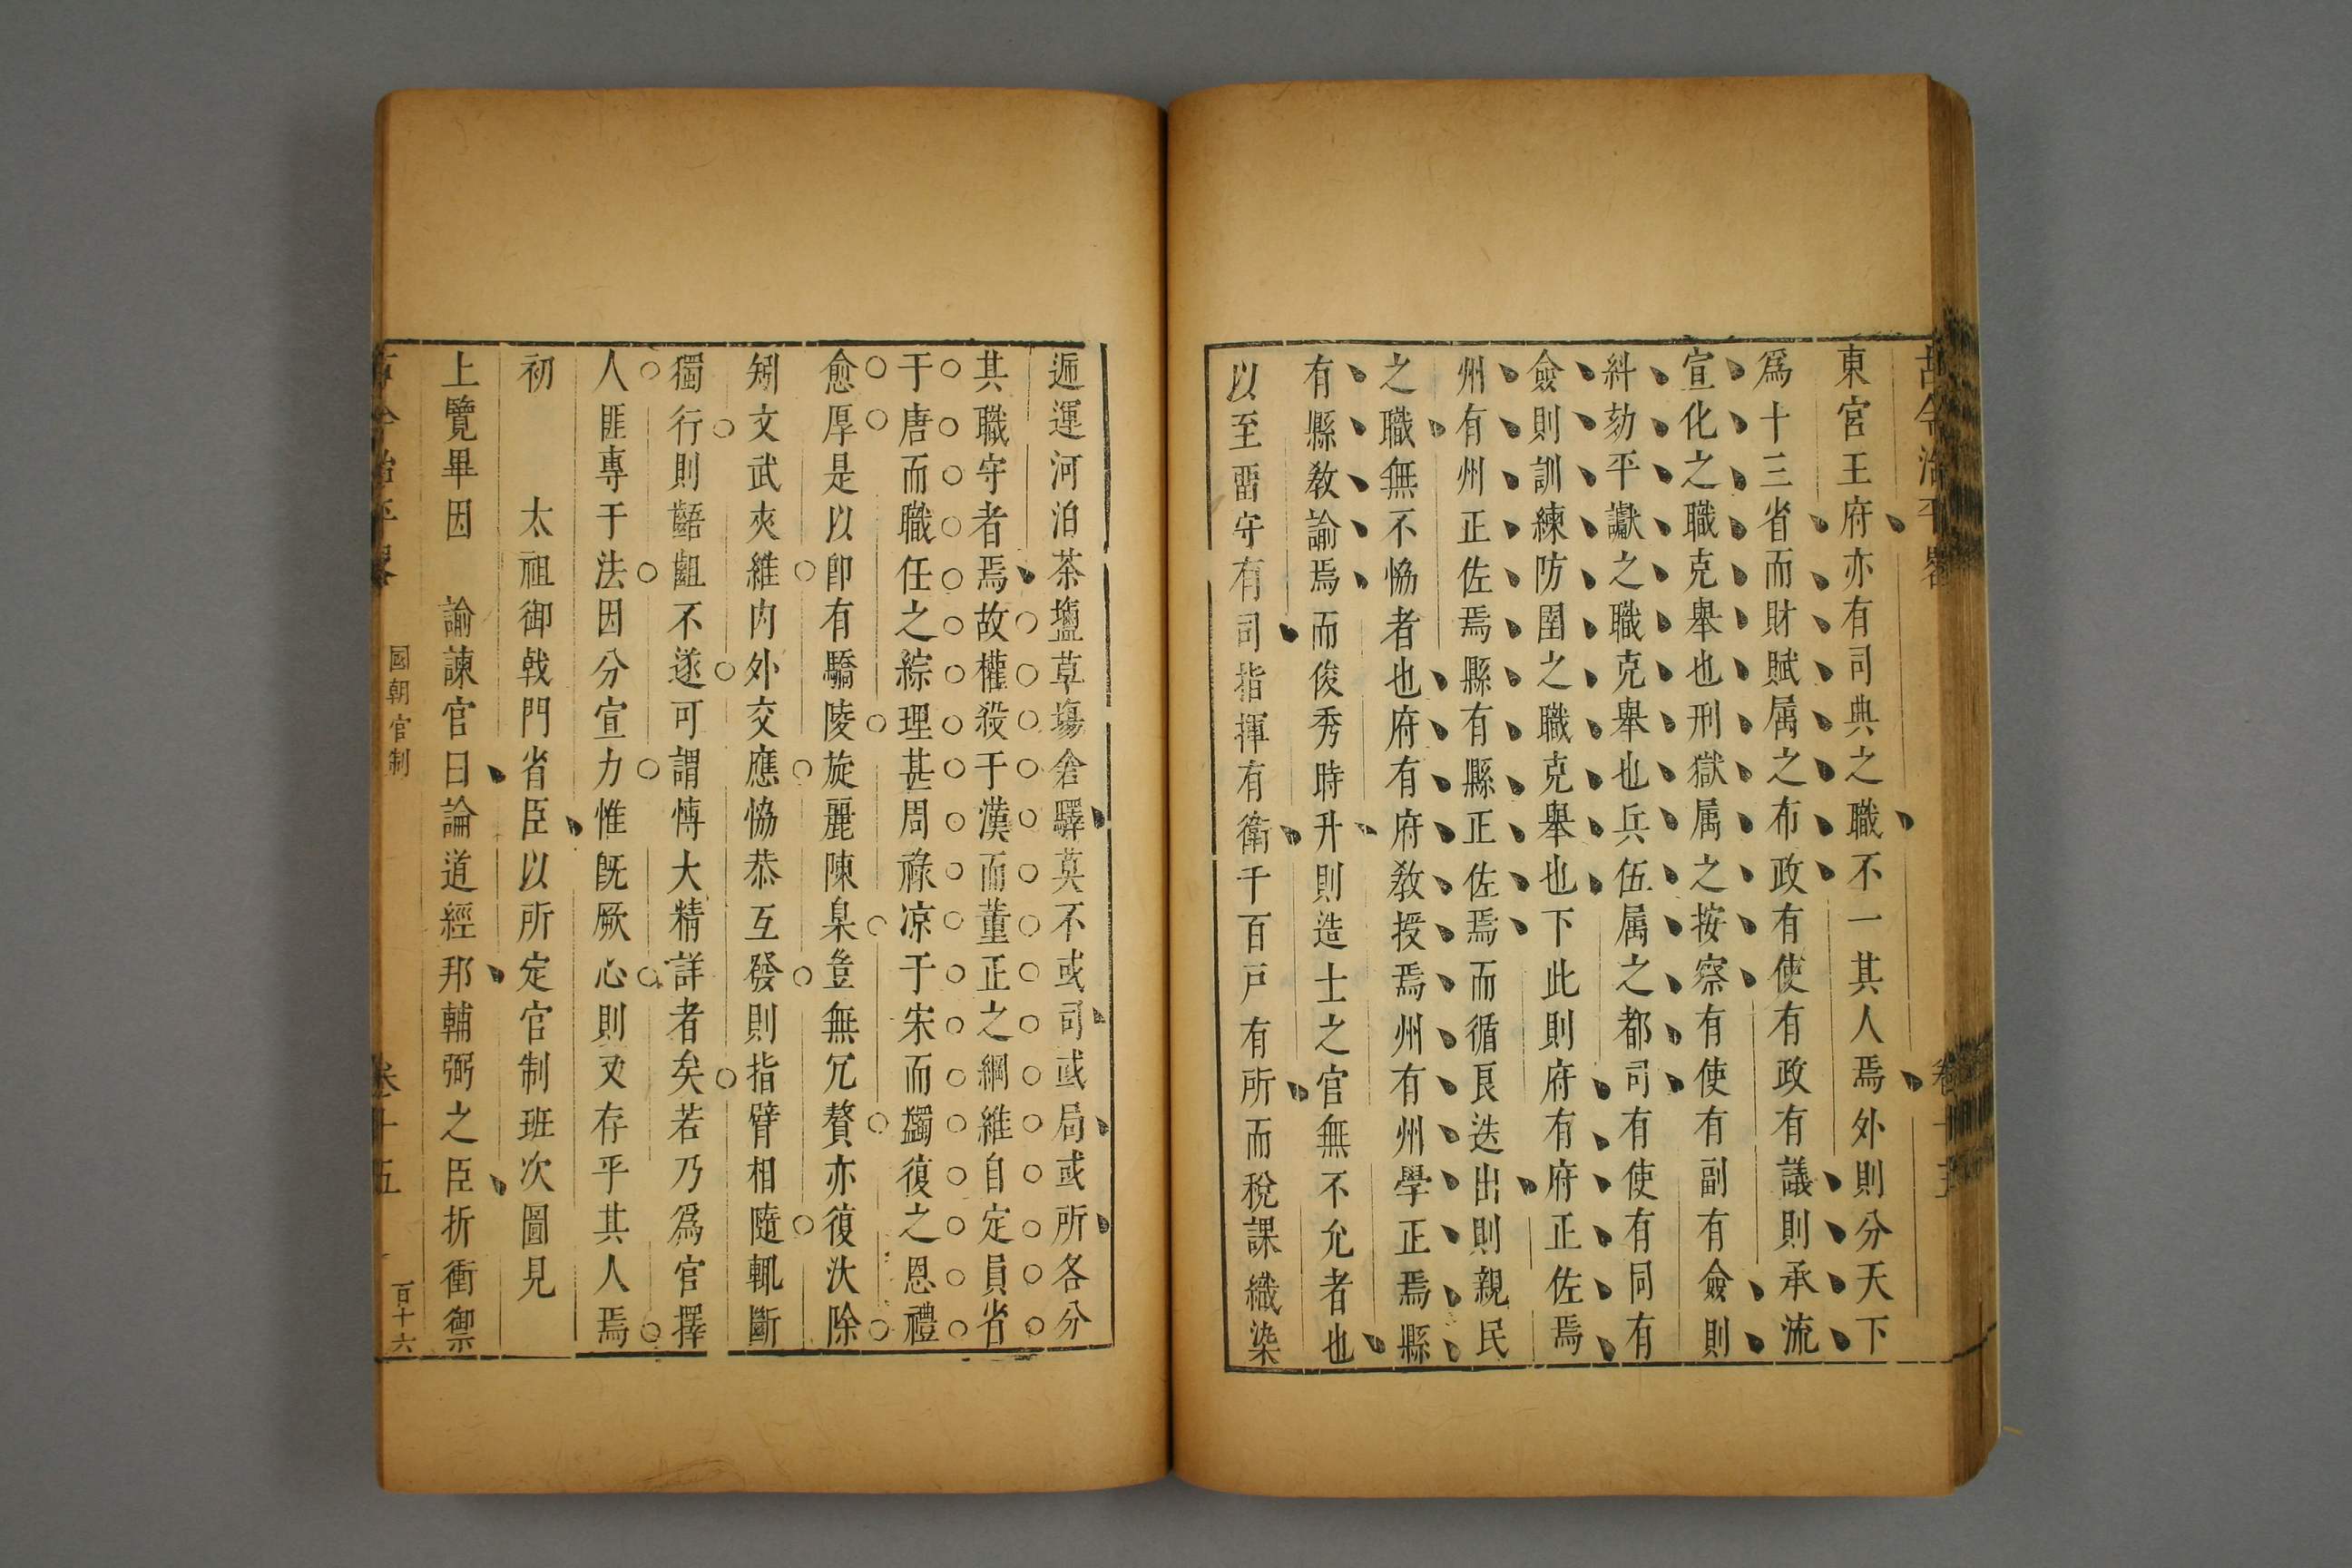 古今治平畧
卷十五
東宮王府亦有司典之職不一其人焉外則分天下
爲十三省而財賦属之布政有使有政有議則承流
宣化之職克舉也刑獄属之按察有使有副有僉則
糾劾平讞之職克舉也兵伍属之都司有使有同有
僉則訓練防圉之職克舉也下此則府有府正佐焉
州有州正佐焉縣有縣正佐焉而循良迭出則親民
之職無不恊者也府有府教授焉州有州學正焉縣
有縣教諭焉而俊秀時升則造士之官無不允者也
以至畱守有司指揮有衛千百戸有所而稅課織染
逓運河泊茶塩草塲倉驛莫不或司或局或所各分
其職守者焉故權殺于漢而董正之綱維自定員省
于唐而職任之綜理甚周祿凉于宋而蠲復之恩禮
愈厚是以卽有驕陵旋麗陳臬豈無冗贅亦復汰除
矧文武夾維内外交應恊恭互發則指臂相隨輒斷
獨行則齬齟不遂可謂愽大精詳者矣若乃爲官擇
人匪專于法因分宣力惟旣厥心則又存乎其人焉
初　太祖御戟門省臣以所定官制班次圖見
上覽畢因　諭諫官曰論道經邦輔弼之臣折衝禦
古今治平畧
國朝官制
卷十五
百十六